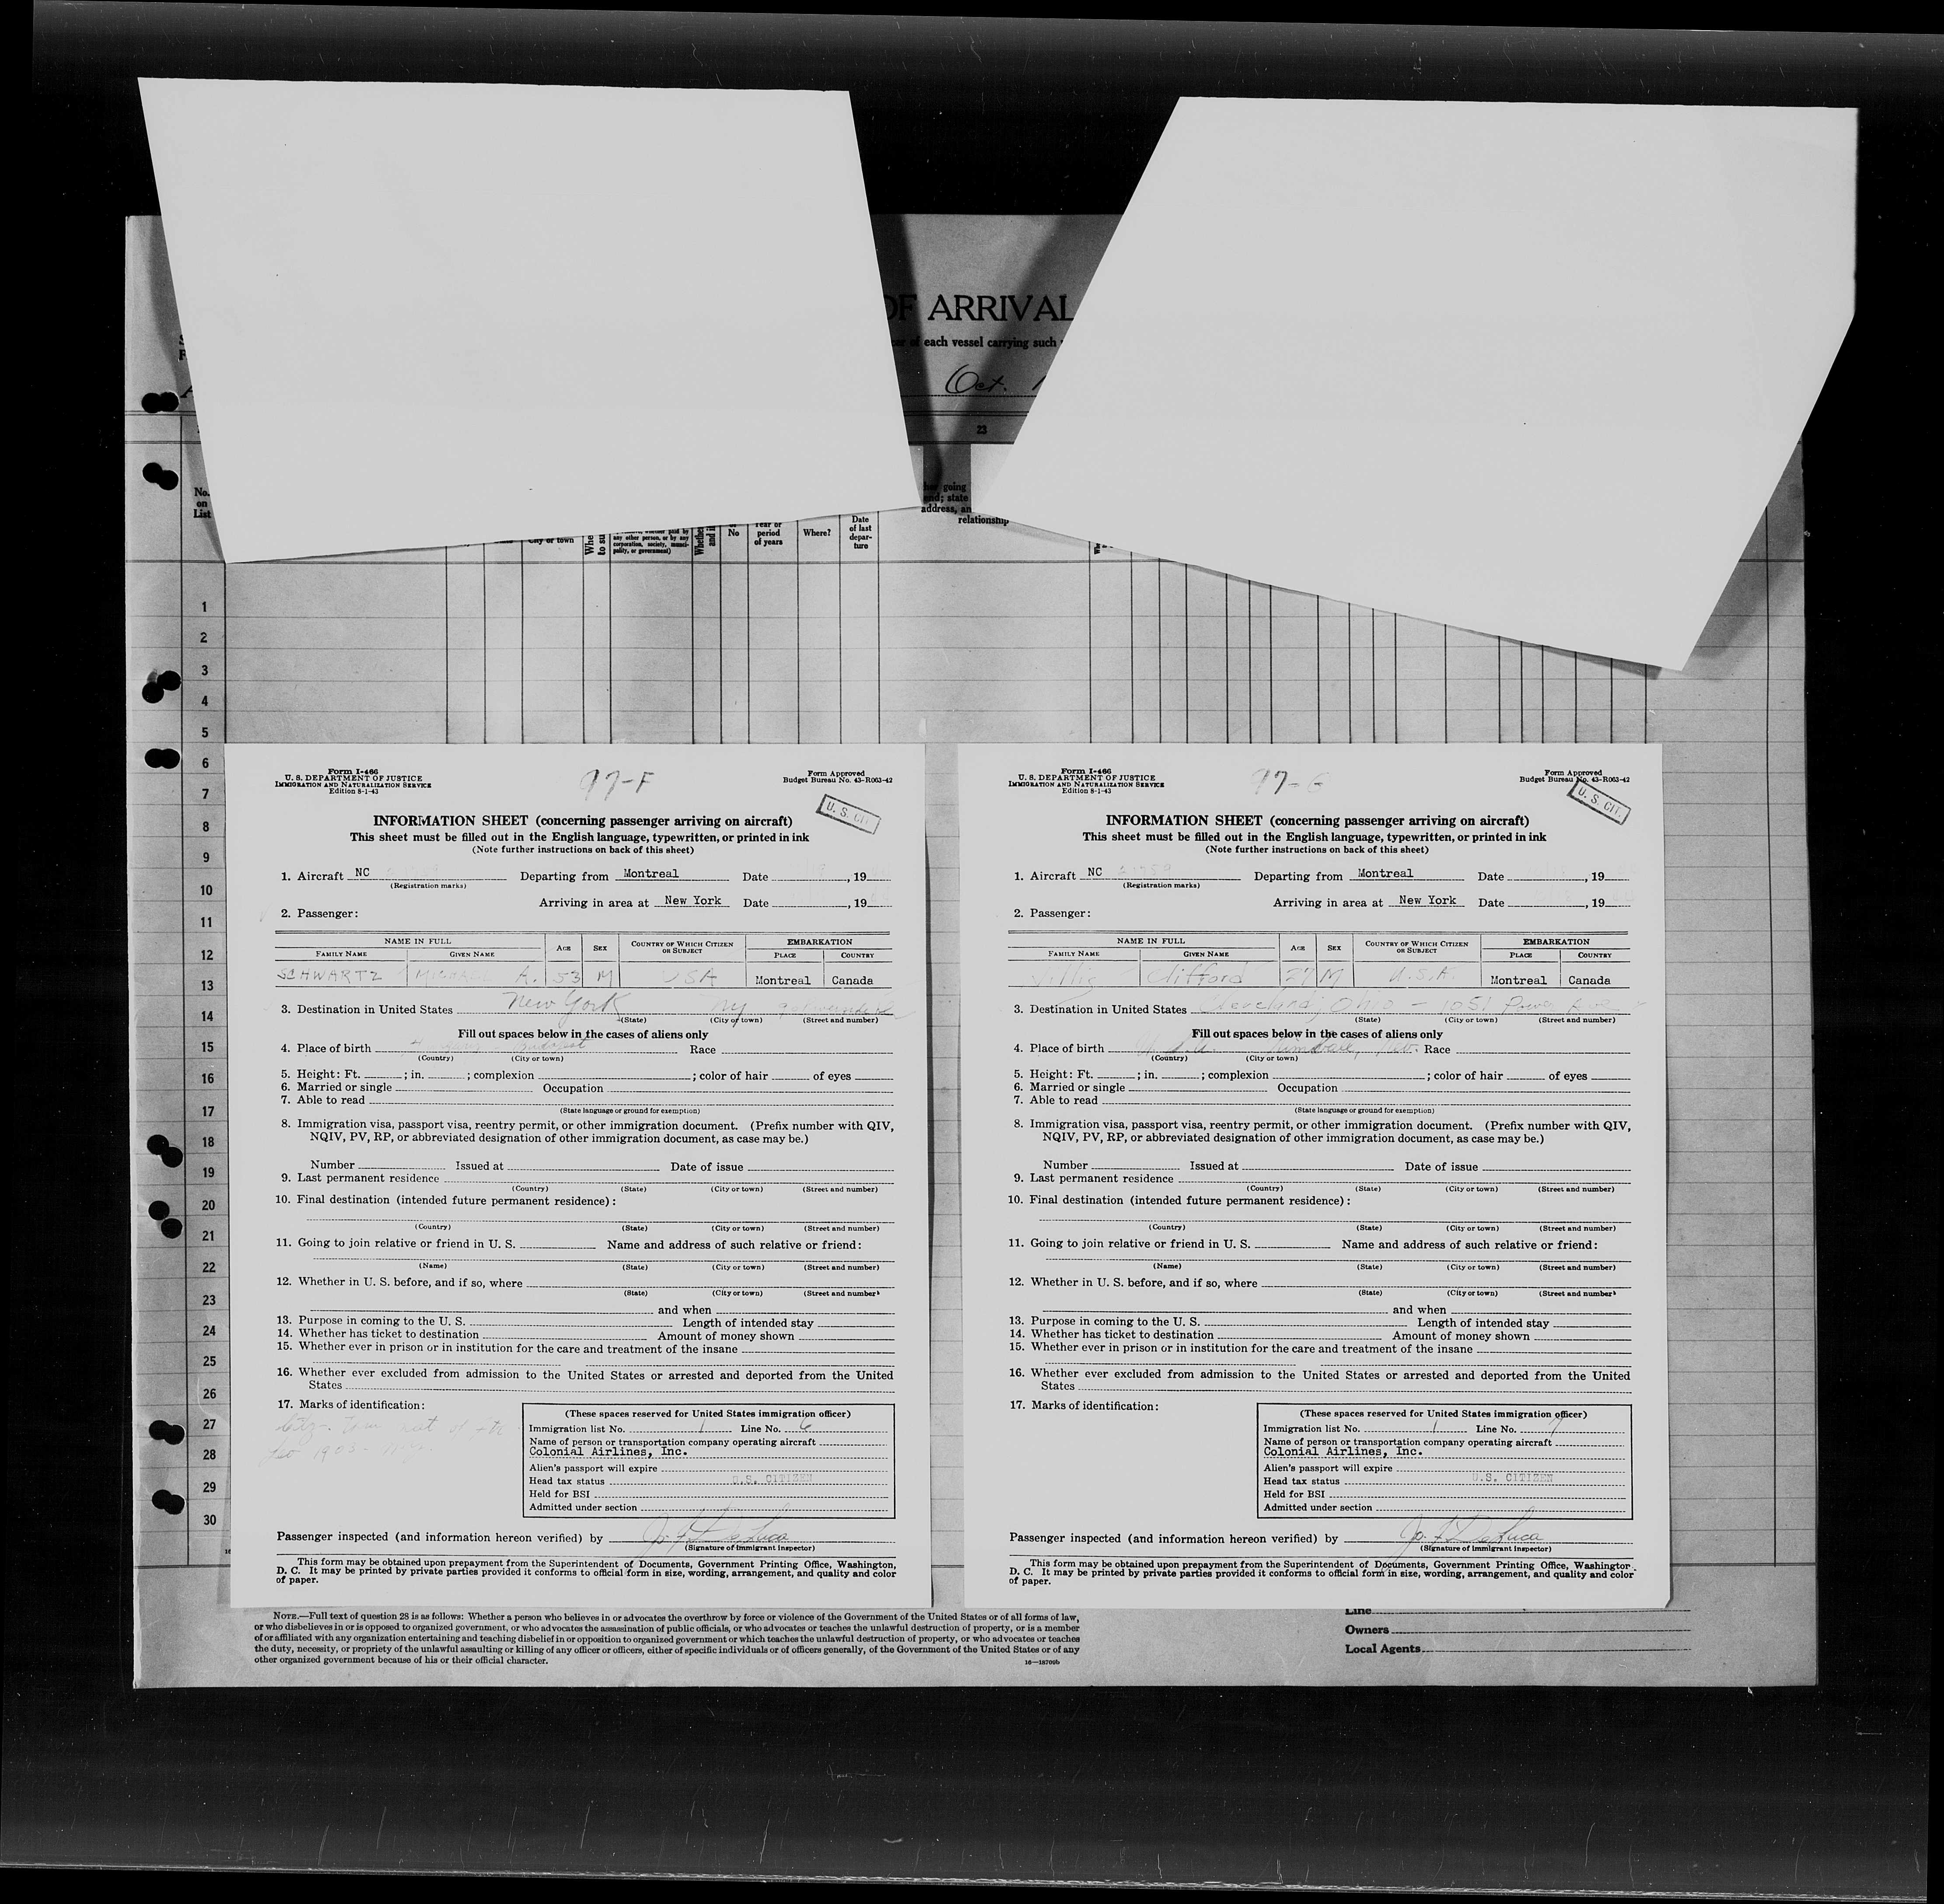 OF ARRIVAL
of each vessel carrying such
Oct. 1
23
No.
on
List
going
end; state
address, an
relationship
any other person, or by any
corporation, society, munici-
pality, or government)
City or town
No
Year or
period
of years
Where?
Date
of last
depar-
ture
1
2
3
4
5
6
7
8
9
10
11
12
13
14
15
16
17
18
19
20
21
22
23
24
25
26
27
28
29
30
Form I-466
U. S. DEPARTMENT OF JUSTICE
IMMIGRATION AND NATURALIZATION SERVICE
Edition 8-1-43
97-F
Form Approved
Budget Bureau No. 43-R063-42
U. S. CIT.
INFORMATION SHEET (concerning passenger arriving on aircraft)
This sheet must be filled out in the English language, typewritten, or printed in ink
(Note further instructions on back of this sheet)
1. Aircraft NC Departing from Montreal Date , 19
(Registration marks)
Arriving in area at New York Date , 19
2. Passenger:
NAME IN FULL AGE SEX COUNTRY OF WHICH CITIZEN OR SUBJECT EMBARKATION
FAMILY NAME GIVEN NAME PLACE COUNTRY
SCHWARTZ A. 53 M USA Montreal Canada
3. Destination in United States New York NY
(State) (City or town) (Street and number)
Fill out spaces below in the cases of aliens only
4. Place of birth Budapest Race
(Country) (City or town)
5. Height: Ft. ; in. ; complexion ; color of hair of eyes
6. Married or single Occupation
7. Able to read
(State language or ground for exemption)
8. Immigration visa, passport visa, reentry permit, or other immigration document. (Prefix number with QIV,
NQIV, PV, RP, or abbreviated designation of other immigration document, as case may be.)
Number Issued at Date of issue
9. Last permanent residence
(Country) (State) (City or town) (Street and number)
10. Final destination (intended future permanent residence):
(Country) (State) (City or town) (Street and number)
11. Going to join relative or friend in U. S. Name and address of such relative or friend:
(Name) (State) (City or town) (Street and number)
12. Whether in U. S. before, and if so, where
(State) (City or town) (Street and number)
and when
13. Purpose in coming to the U. S. Length of intended stay
14. Whether has ticket to destination Amount of money shown
15. Whether ever in prison or in institution for the care and treatment of the insane
16. Whether ever excluded from admission to the United States or arrested and deported from the United
States
17. Marks of identification:
(These spaces reserved for United States immigration officer)
Immigration list No. 1 Line No. 6
Name of person or transportation company operating aircraft
Colonial Airlines, Inc.
Alien's passport will expire
Head tax status U.S. CITIZEN
Held for BSI
Admitted under section
Passenger inspected (and information hereon verified) by Jo. F. DeLuca
(Signature of Immigrant Inspector)
This form may be obtained upon prepayment from the Superintendent of Documents, Government Printing Office, Washington,
D. C. It may be printed by private parties provided it conforms to official form in size, wording, arrangement, and quality and color
of paper.
Form I-466
U. S. DEPARTMENT OF JUSTICE
IMMIGRATION AND NATURALIZATION SERVICE
Edition 8-1-43
97-G
Form Approved
Budget Bureau No. 43-R063-42
U. S. CIT.
INFORMATION SHEET (concerning passenger arriving on aircraft)
This sheet must be filled out in the English language, typewritten, or printed in ink
(Note further instructions on back of this sheet)
1. Aircraft NC Departing from Montreal Date , 19
(Registration marks)
Arriving in area at New York Date , 19
2. Passenger:
NAME IN FULL AGE SEX COUNTRY OF WHICH CITIZEN OR SUBJECT EMBARKATION
FAMILY NAME GIVEN NAME PLACE COUNTRY
Clifford 27 M U.S.A. Montreal Canada
3. Destination in United States Cleveland, Ohio - 1051 Power Ave
(State) (City or town) (Street and number)
Fill out spaces below in the cases of aliens only
4. Place of birth Race
(Country) (City or town)
5. Height: Ft. ; in. ; complexion ; color of hair of eyes
6. Married or single Occupation
7. Able to read
(State language or ground for exemption)
8. Immigration visa, passport visa, reentry permit, or other immigration document. (Prefix number with QIV,
NQIV, PV, RP, or abbreviated designation of other immigration document, as case may be.)
Number Issued at Date of issue
9. Last permanent residence
(Country) (State) (City or town) (Street and number)
10. Final destination (intended future permanent residence):
(Country) (State) (City or town) (Street and number)
11. Going to join relative or friend in U. S. Name and address of such relative or friend:
(Name) (State) (City or town) (Street and number)
12. Whether in U. S. before, and if so, where
(State) (City or town) (Street and number)
and when
13. Purpose in coming to the U. S. Length of intended stay
14. Whether has ticket to destination Amount of money shown
15. Whether ever in prison or in institution for the care and treatment of the insane
16. Whether ever excluded from admission to the United States or arrested and deported from the United
States
17. Marks of identification:
(These spaces reserved for United States immigration officer)
Immigration list No. 1 Line No. 7
Name of person or transportation company operating aircraft
Colonial Airlines, Inc.
Alien's passport will expire
Head tax status U.S. CITIZEN
Held for BSI
Admitted under section
Passenger inspected (and information hereon verified) by Jo. F. DeLuca
(Signature of Immigrant Inspector)
This form may be obtained upon prepayment from the Superintendent of Documents, Government Printing Office, Washington,
D. C. It may be printed by private parties provided it conforms to official form in size, wording, arrangement, and quality and color
of paper.
NOTE.—Full text of question 28 is as follows: Whether a person who believes in or advocates the overthrow by force or violence of the Government of the United States or of all forms of law,
or who disbelieves in or is opposed to organized government, or who advocates the assassination of public officials, or who advocates or teaches the unlawful destruction of property, or is a member
of or affiliated with any organization entertaining and teaching disbelief in or opposition to organized government or which teaches the unlawful destruction of property, or who advocates or teaches
the duty, necessity, or propriety of the unlawful assaulting or killing of any officer or officers, either of specific individuals or of officers generally, of the Government of the United States or of any
other organized government because of his or their official character.
16—18709b
Line
Owners
Local Agents